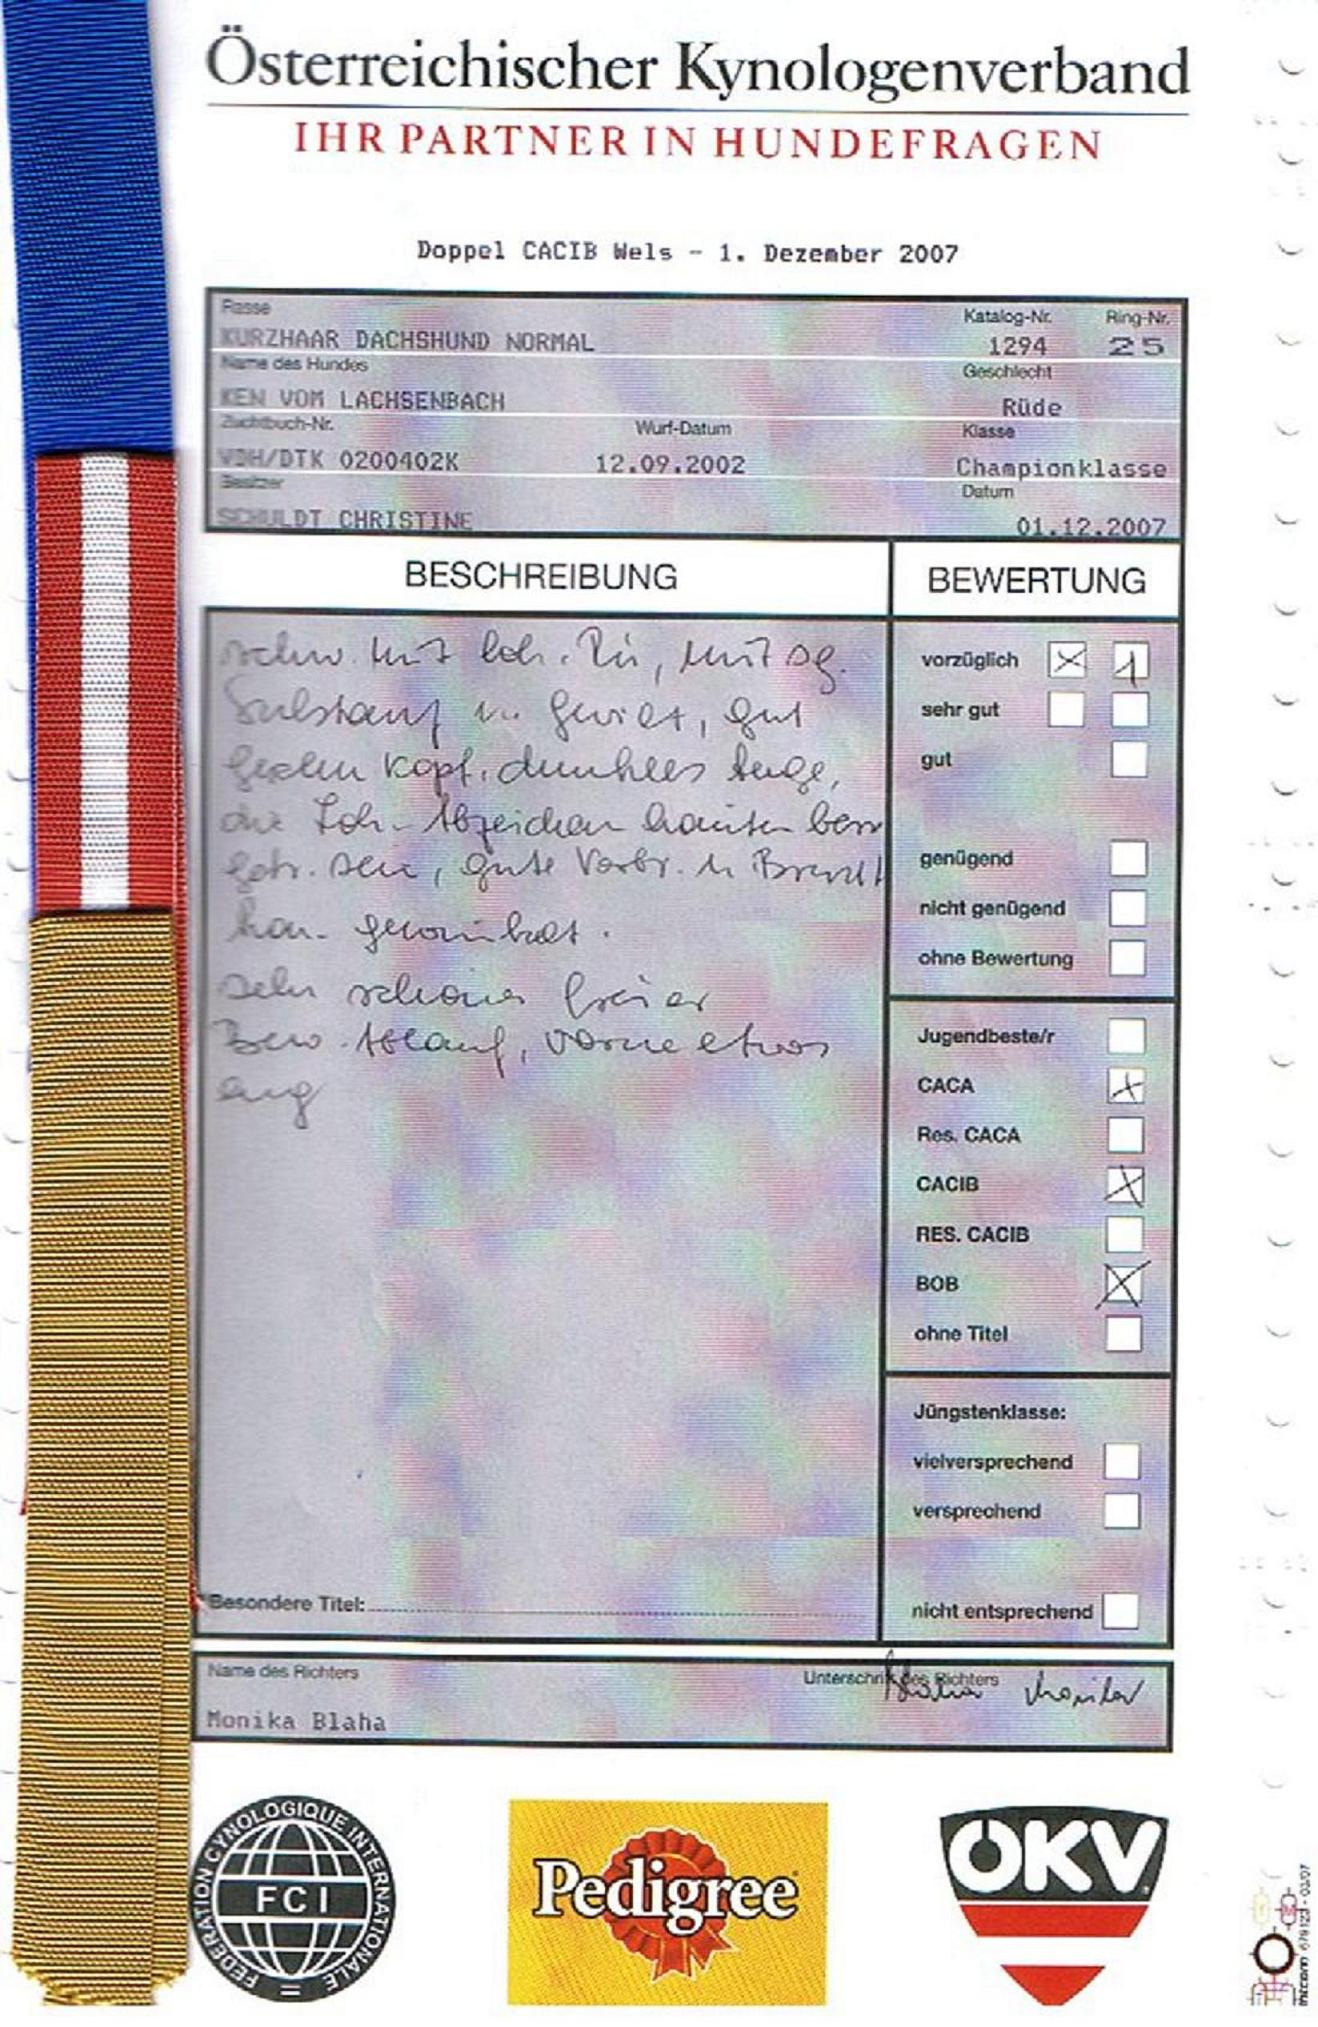 Österreichischer Kynologenverband
IHR PARTNER IN HUNDEFRAGEN
Doppel CACIB Wels - 1. Dezember 2007
Rasse
Katalog-Nr.
Ring-Nr.
KURZHAAR DACHSHUND NORMAL
1294
25
Name des Hundes
Geschlecht
KEN VOM LACHSENBACH
Rüde
Zuchtbuch-Nr.
Wurf-Datum
Klasse
VDH/DTK 0200402K
12.09.2002
Championklasse
Besitzer
Datum
SCHULDT CHRISTINE
01.12.2007
BESCHREIBUNG
BEWERTUNG
schw. mit loh. Rü, mit sg.
Substanz u. gut
Kopf, dunkles Auge,
die Loh-Abzeichen
sein, gute Vorbr. u. Brust
gewinkelt.
sehr schöner freier
Bew. Ablauf, vorne etwas
eng
vorzüglich
1
sehr gut
gut
genügend
nicht genügend
ohne Bewertung
Jugendbeste/r
CACA
Res. CACA
CACIB
RES. CACIB
BOB
ohne Titel
Jüngstenklasse:
vielversprechend
versprechend
nicht entsprechend
Besondere Titel:
Name des Richters
Unterschrift des Richters
Monika Blaha
Blaha Monika
FEDERATION CYNOLOGIQUE INTERNATIONALE
FCI
Pedigree
ÖKV